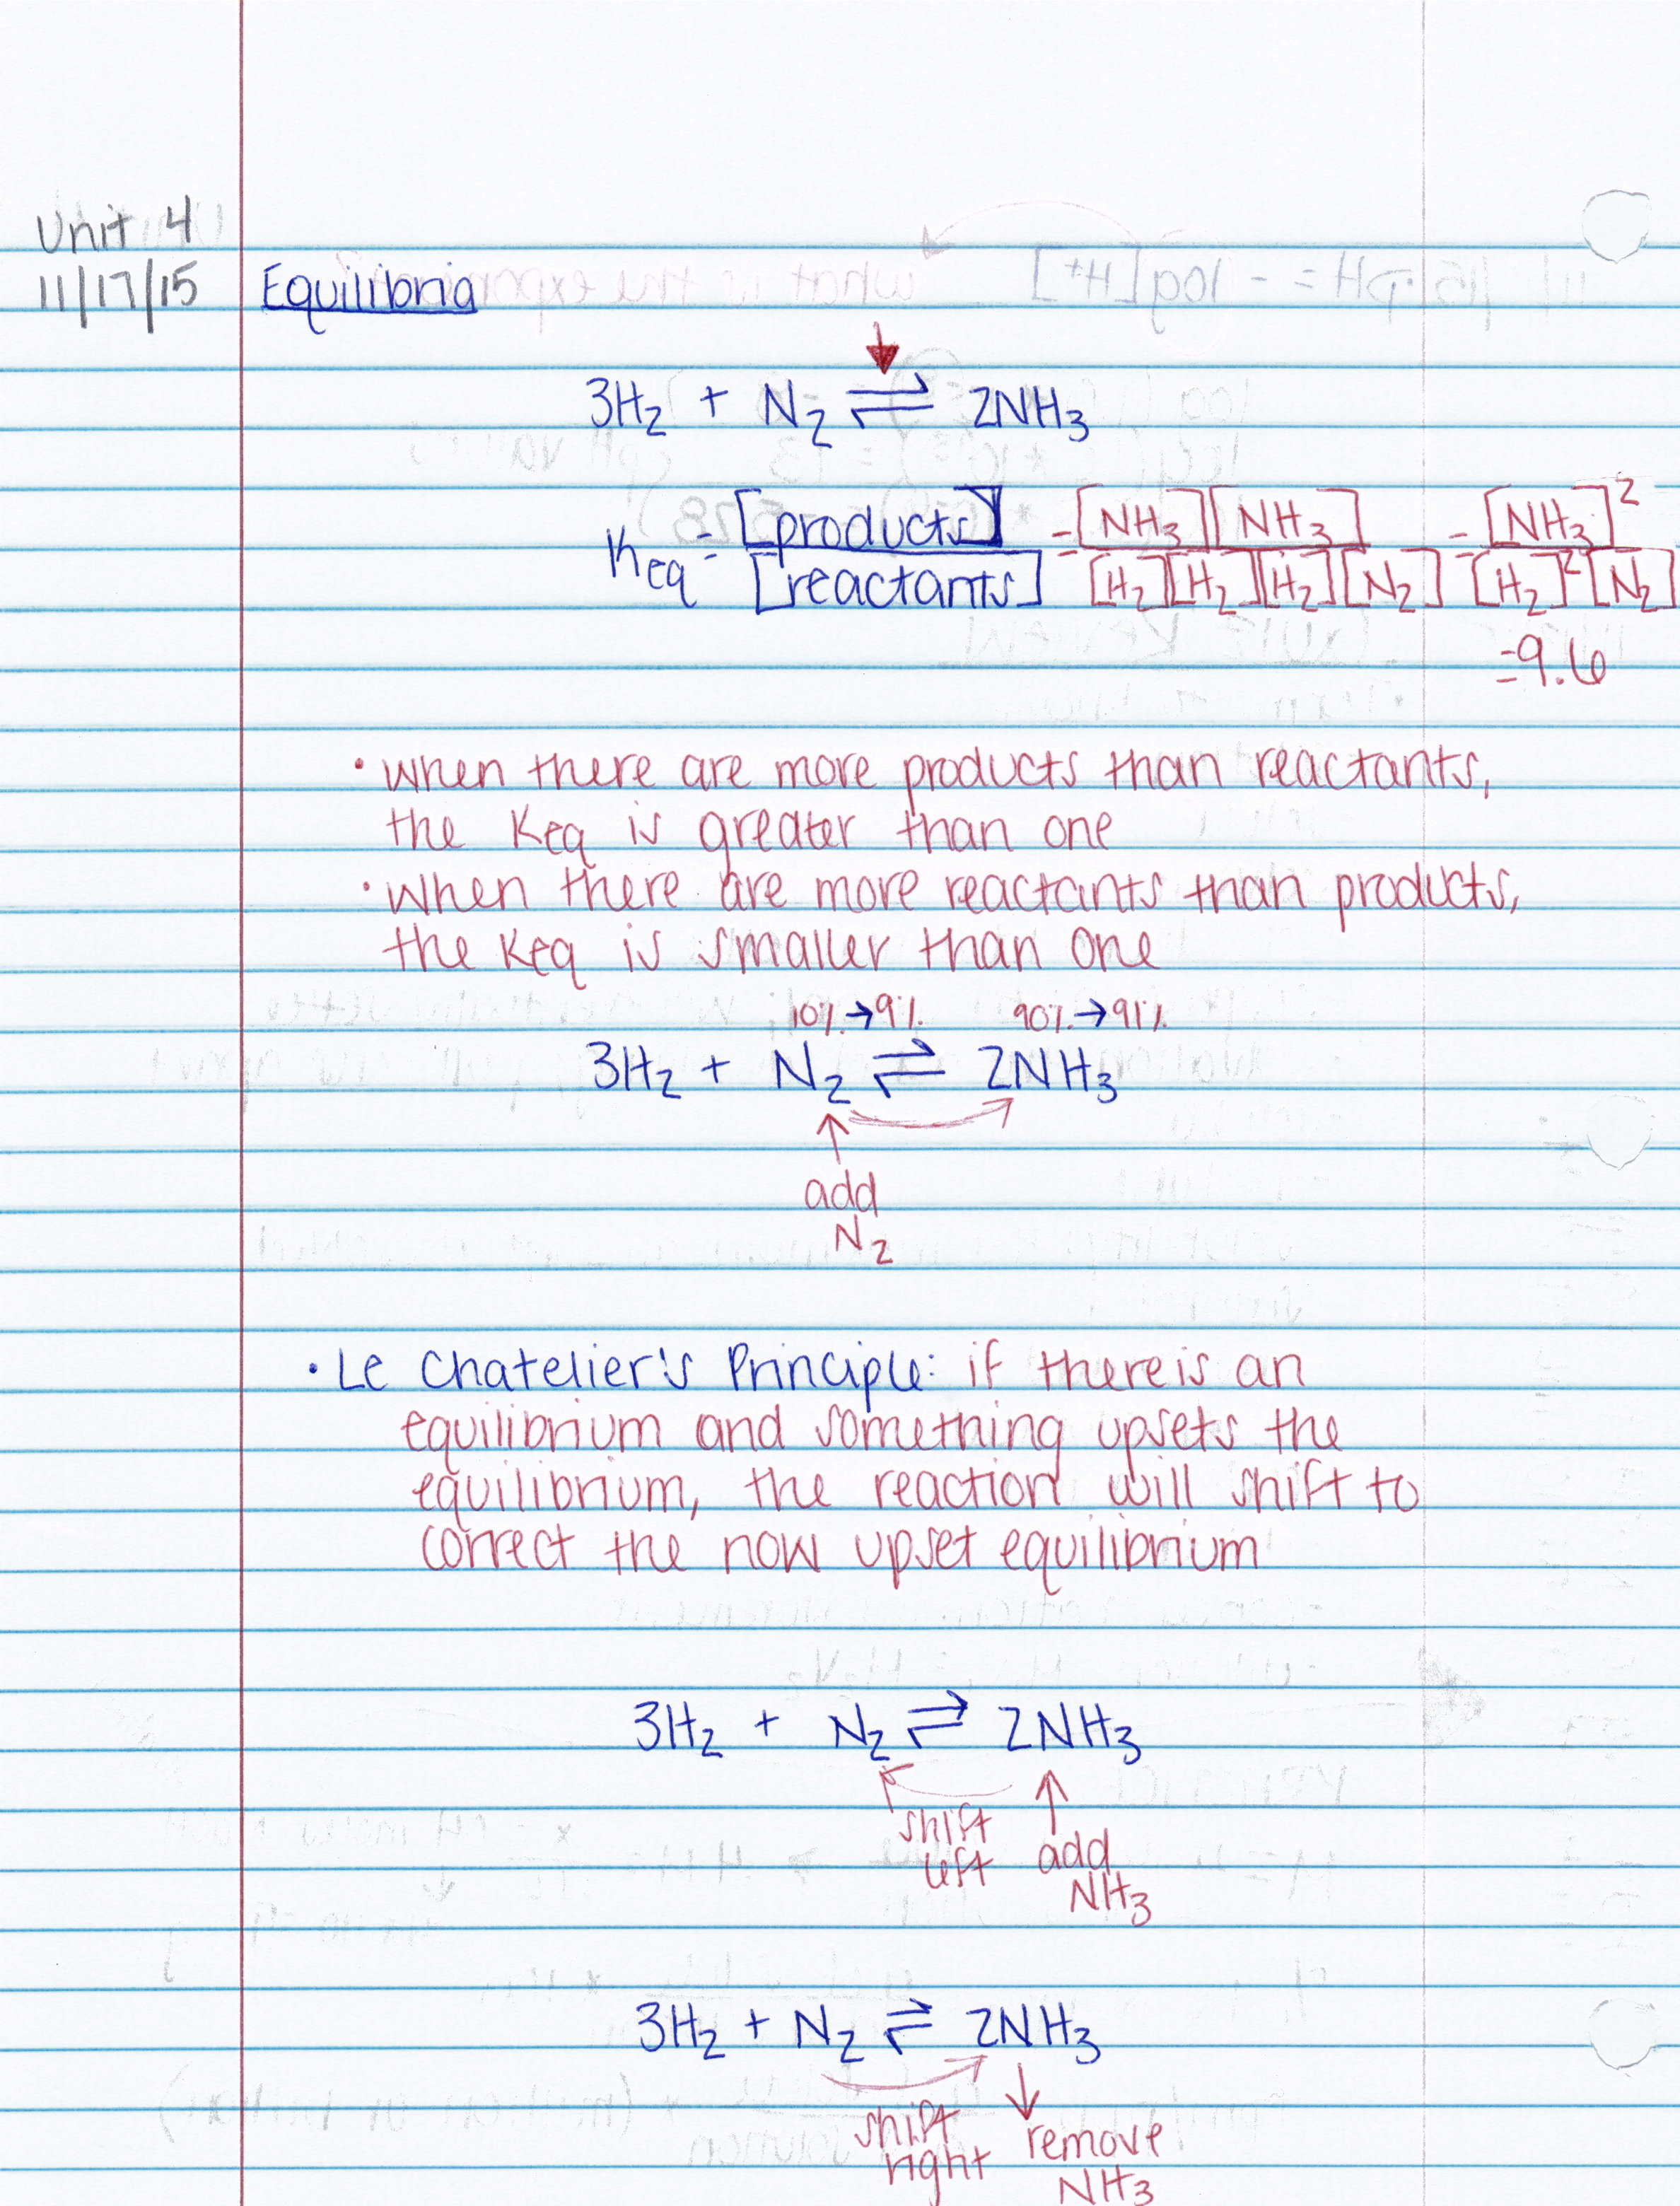 Unit 4
11/17/15 Equilibria
3H₂ + N₂ ⇌ 2NH₃
Keq = [products] / [reactants] = [NH₃][NH₃] / [H₂][H₂][H₂][N₂] = [NH₃]² / [H₂]²[N₂]
=9.6
• when there are more products than reactants,
the Keq is greater than one
• when there are more reactants than products,
the Keq is smaller than one
10% → 9% 90% → 91%
3H₂ + N₂ ⇌ 2NH₃
↑
add
N₂
• Le Chatelier's Principle: if there is an
equilibrium and something upsets the
equilibrium, the reaction will shift to
correct the now upset equilibrium
3H₂ + N₂ ⇌ 2NH₃
shift left
↑ add NH₃
3H₂ + N₂ ⇌ 2NH₃
shift right
↓ remove NH₃